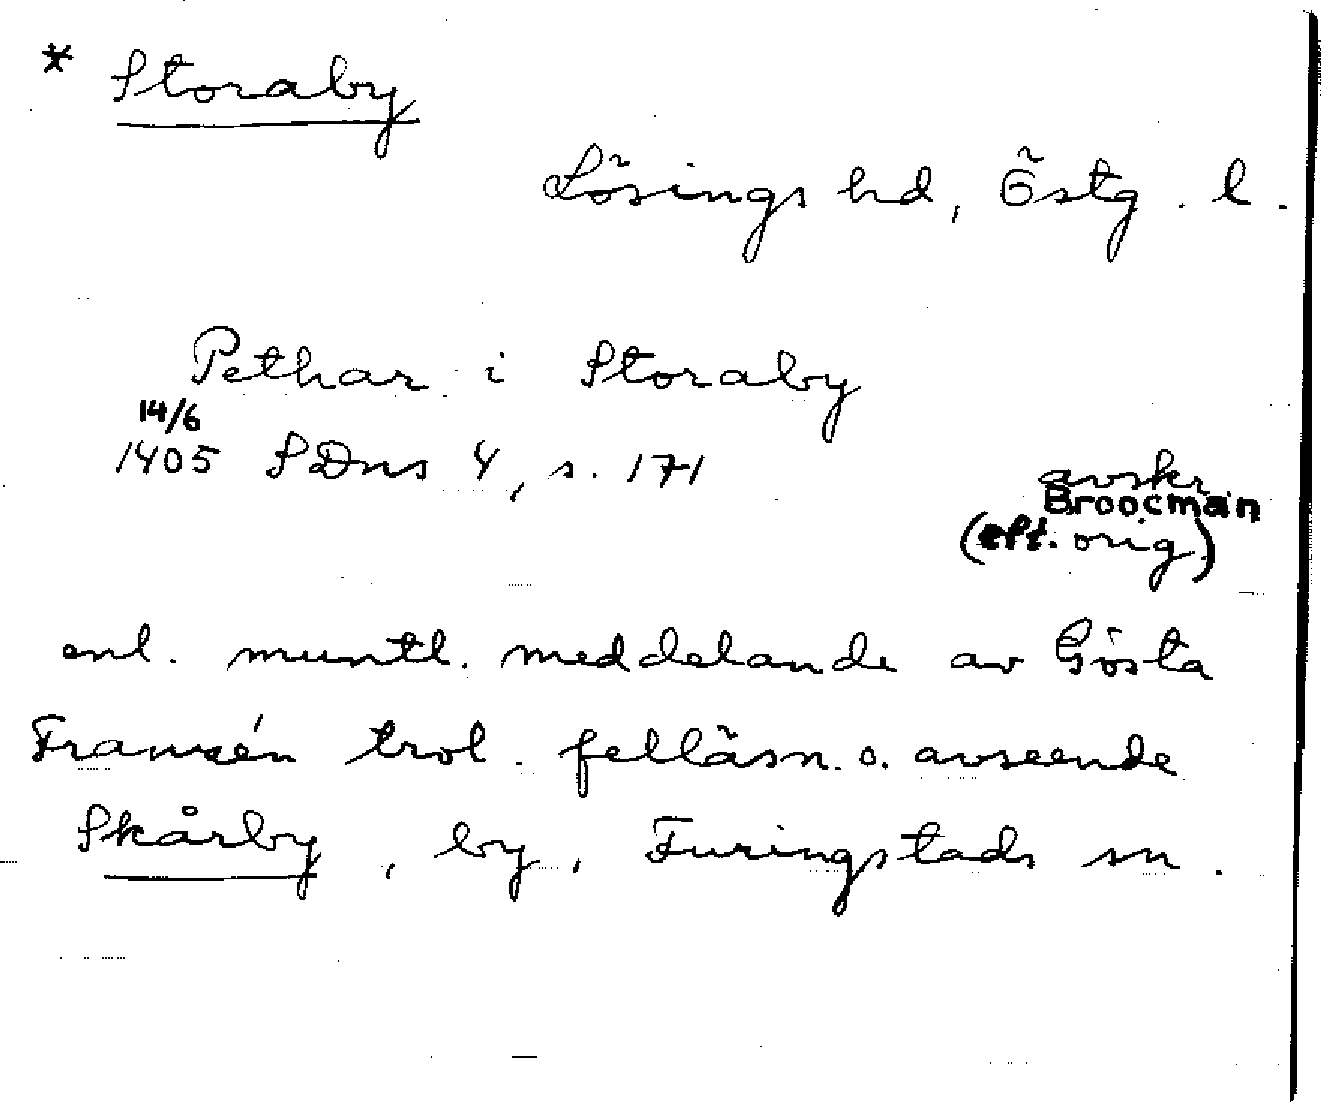 * Storaby
Lösings hd, Östg. l.
Pethar i Storaby
14/6
1405 SDns 4, s. 171
avskr
Broocman
(eft. orig)
enl. muntl. meddelande av Gösta
Franzén trol. felläsn. o. avseende
Skårby, by, Furingstads sn.